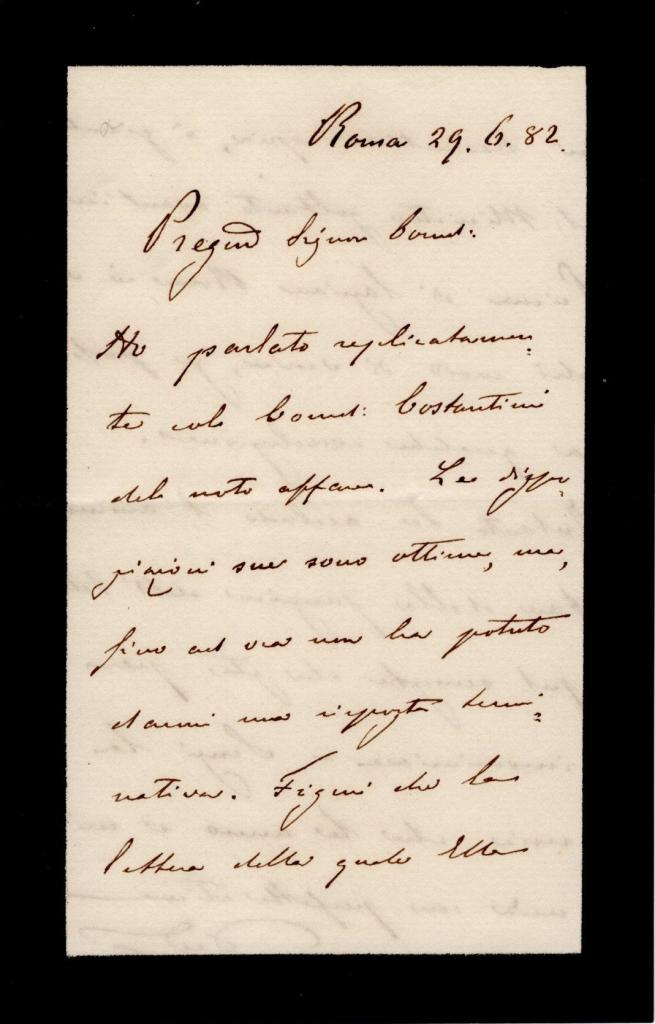 Roma 29. 6. 82.
Pregmo Signor Comd:
Ho parlato replicatamen=
te col Comd: Costantini
del noto affare. Le dispo=
sizioni sue sono ottime, ma,
fino ad ora non ha potuto
darmi una risposta termi=
nativa. Figuri che la
lettera della quale Ella